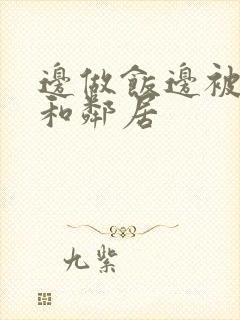 邊做飯邊被
和鄰居
九紫